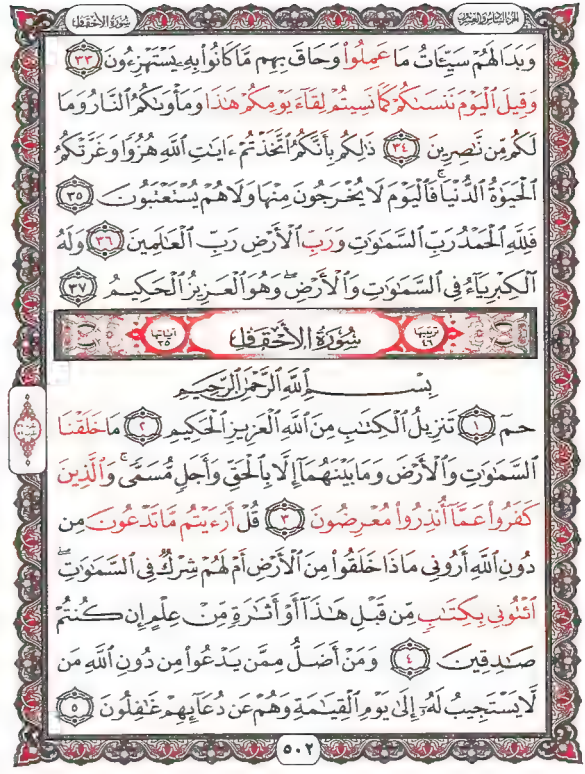 سُورَةُ الأَحْقَافِ
الجُزءُ السَّادِسُ وَالعِشرُونَ
وَبَدَا لَهُمْ سَيِّـَٔاتُ مَا عَمِلُوا۟ وَحَاقَ بِهِم مَّا كَانُوا۟ بِهِۦ يَسْتَهْزِءُونَ ٣٣
وَقِيلَ ٱلْيَوْمَ نَنسَىٰكُمْ كَمَا نَسِيتُمْ لِقَآءَ يَوْمِكُمْ هَٰذَا وَمَأْوَىٰكُمُ ٱلنَّارُ وَمَا
لَكُم مِّن نَّٰصِرِينَ ٣٤ ذَٰلِكُم بِأَنَّكُمُ ٱتَّخَذْتُمْ ءَايَٰتِ ٱللَّهِ هُزُوًا وَغَرَّتْكُمُ
ٱلْحَيَوٰةُ ٱلدُّنْيَا ۚ فَٱلْيَوْمَ لَا يُخْرَجُونَ مِنْهَا وَلَا هُمْ يُسْتَعْتَبُونَ ٣٥
فَلِلَّهِ ٱلْحَمْدُ رَبِّ ٱلسَّمَٰوَٰتِ وَرَبِّ ٱلْأَرْضِ رَبِّ ٱلْعَٰلَمِينَ ٣٦ وَلَهُ
ٱلْكِبْرِيَآءُ فِى ٱلسَّمَٰوَٰتِ وَٱلْأَرْضِ ۖ وَهُوَ ٱلْعَزِيزُ ٱلْحَكِيمُ ٣٧
ترتيبها ٤٦ سُورَةُ الأَحْقَافِ آياتها ٣٥
بِسْمِ ٱللَّهِ ٱلرَّحْمَٰنِ ٱلرَّحِيمِ
حمٓ ١ تَنزِيلُ ٱلْكِتَٰبِ مِنَ ٱللَّهِ ٱلْعَزِيزِ ٱلْحَكِيمِ ٢ مَا خَلَقْنَا
ٱلسَّمَٰوَٰتِ وَٱلْأَرْضَ وَمَا بَيْنَهُمَآ إِلَّا بِٱلْحَقِّ وَأَجَلٍ مُّسَمًّى ۚ وَٱلَّذِينَ
كَفَرُوا۟ عَمَّآ أُنذِرُوا۟ مُعْرِضُونَ ٣ قُلْ أَرَءَيْتُم مَّا تَدْعُونَ مِن
دُونِ ٱللَّهِ أَرُونِى مَاذَا خَلَقُوا۟ مِنَ ٱلْأَرْضِ أَمْ لَهُمْ شِرْكٌ فِى ٱلسَّمَٰوَٰتِ ۖ
ٱئْتُونِى بِكِتَٰبٍ مِّن قَبْلِ هَٰذَآ أَوْ أَثَٰرَةٍ مِّنْ عِلْمٍ إِن كُنتُمْ
صَٰدِقِينَ ٤ وَمَنْ أَضَلُّ مِمَّن يَدْعُوا۟ مِن دُونِ ٱللَّهِ مَن
لَّا يَسْتَجِيبُ لَهُۥٓ إِلَىٰ يَوْمِ ٱلْقِيَٰمَةِ وَهُمْ عَن دُعَآئِهِمْ غَٰفِلُونَ ٥
٥٠٢